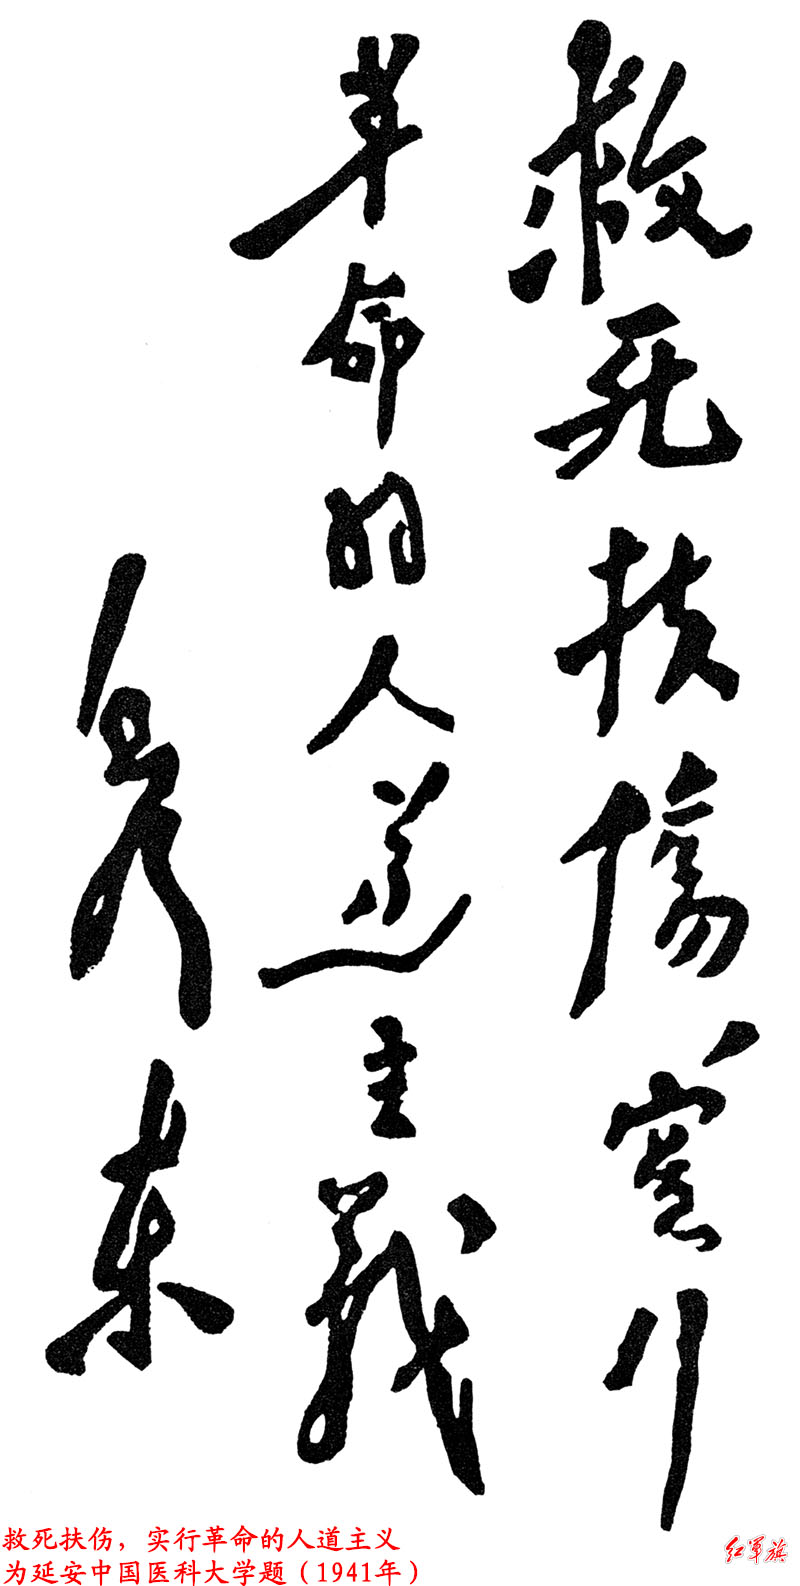 救死扶傷實行
革命的人道主義
毛澤东
救死扶伤，实行革命的人道主义
为延安中国医科大学题（1941年）
红军旗